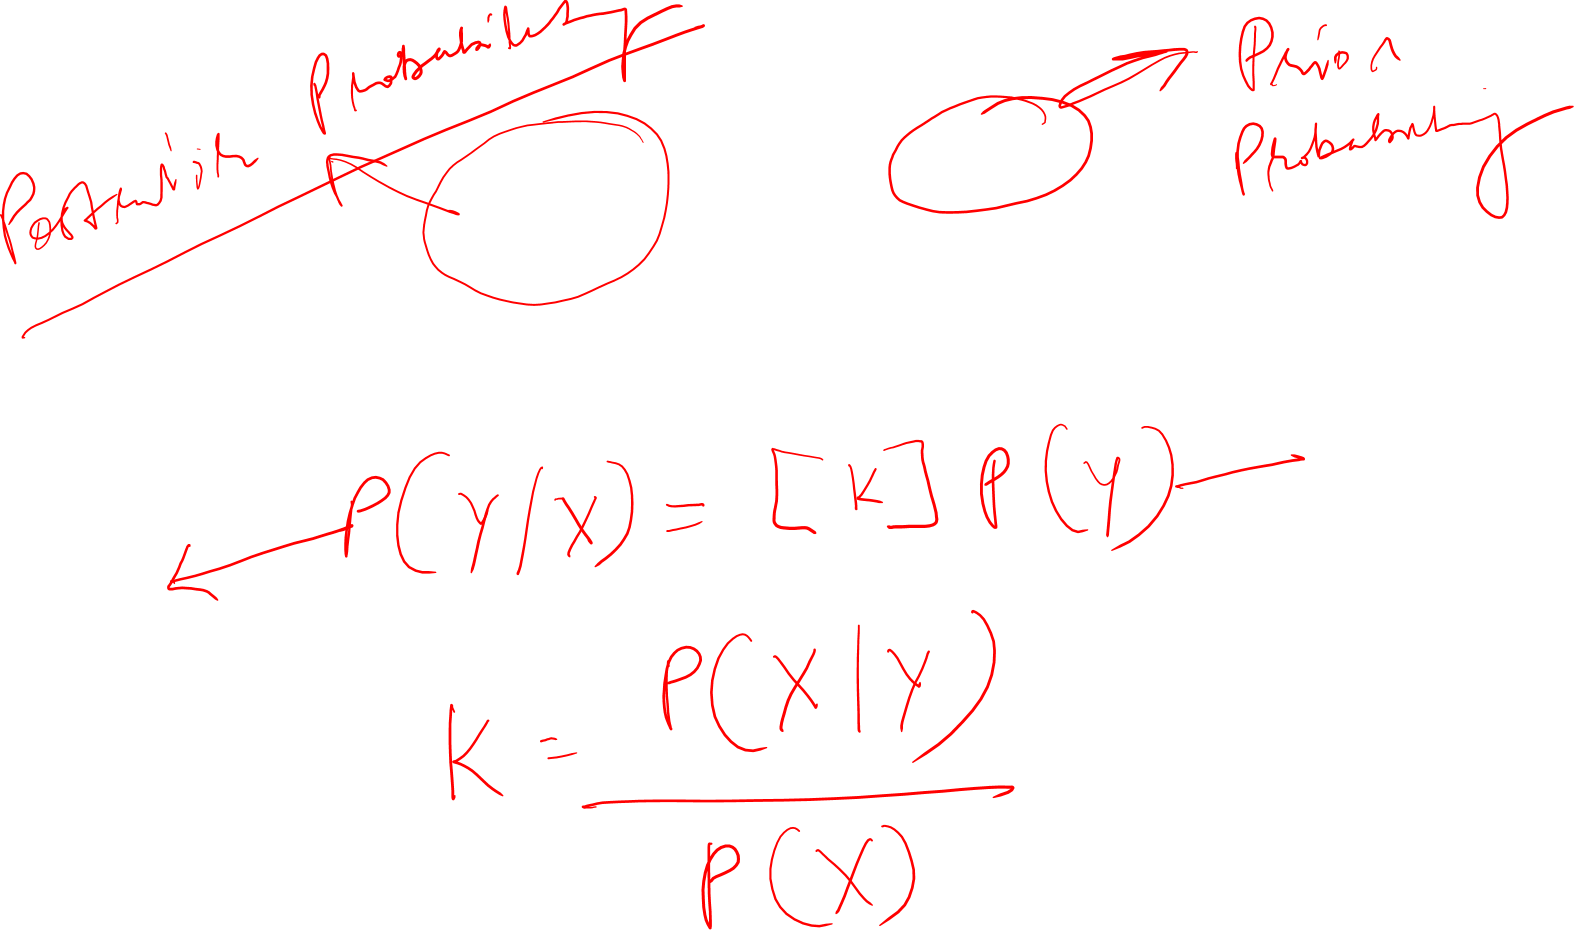 Posterior Probability
Prior
Probability
P(Y/X) = [K] P(Y)
K = P(X|Y)
P(X)